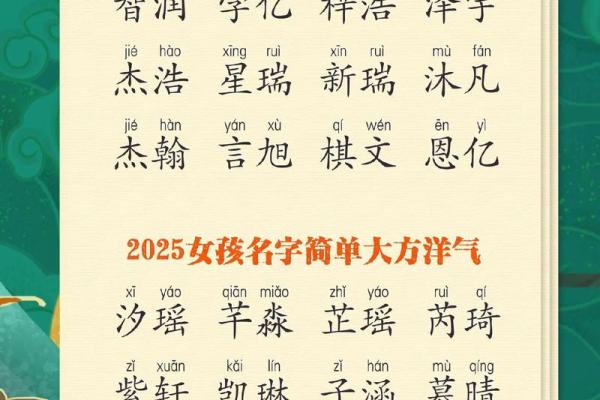 智润 学亿 梓浩 泽宇
jié hào xīng ruì xīn ruì mù fán
杰浩 星瑞 新瑞 沐凡
jié hàn yán xù qí wén ēn yì
杰翰 言旭 棋文 恩亿
2025女孩名字简单大方洋气
xī yáo qiān miǎo zhǐ yáo ruì qí
汐瑶 芊淼 芷瑶 芮琦
zǐ xuān kǎi lín zǐ hán mù qíng
紫轩 凯琳 子涵 慕晴